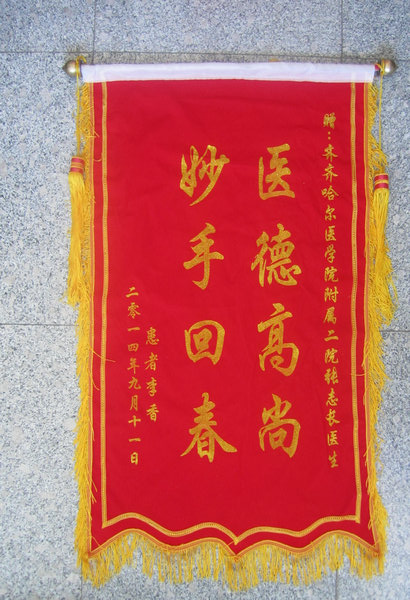 赠：齐齐哈尔医学院附属二院张志长医生
医德高尚
妙手回春
患者李香
二零一四年九月十一日